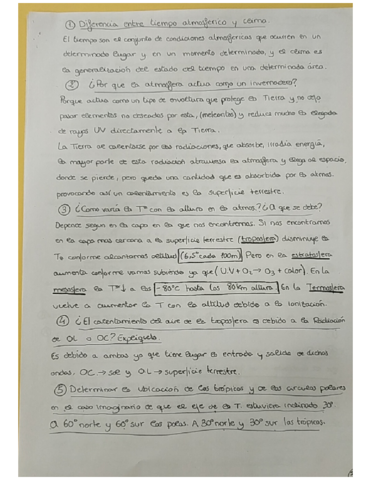 ① Diferencia entre tiempo atmosférico y clima.
El tiempo son el conjunto de condiciones atmosféricas que ocurren en un
determinado lugar y en un momento determinado, y el clima es
la generalización del estado del tiempo en una determinada área.
② ¿Por qué la atmósfera actúa como un invernadero?
Porque actúa como un tipo de envoltura que protege la Tierra y no deja
pasar elementos no deseados por esta, (meteoritos) y reduce mucho la llegada
de rayos UV directamente a la Tierra.
La Tierra se calienta por las radiaciones, que absorbe, irradia energía,
la mayor parte de esta radiación atraviesa la atmósfera y llega al espacio,
donde se pierde, pero queda una cantidad que es absorbida por la atmos.
provocando así un calentamiento es la superficie terrestre.
③ ¿Cómo varía la Tª con la altura en la atmos.? ¿A que se debe?
Depende según en la capa en la que nos encontremos. Si nos encontramos
en la capa más cercana a la superficie terrestre (troposfera) disminuye la
Tº conforme alcanzamos altitud (6,5º cada 100m). Pero en la estratosfera
aumenta conforme vamos subiendo ya que (U.V + O₂ → O₃ + calor). En la
mesosfera la Tª ↓ a los -80ºC hasta los 80km altura. En la Termosfera
vuelve a aumentar la T con la altitud debido a la ionización.
④ ¿El calentamiento del aire de la troposfera es debido a la Radiación
de OL a OC? Explíquelo.
Es debido a ambas ya que tiene lugar la entrada y salida de dichas
ondas. OC → sol y OL → superficie terrestre.
⑤ Determinar la ubicación de los trópicos y de los círculos polares
en el caso imaginario de que el eje de la T. estuviera inclinado 30º
A 60º norte y 60º sur los polos. A 30º norte y 30º sur los trópicos.